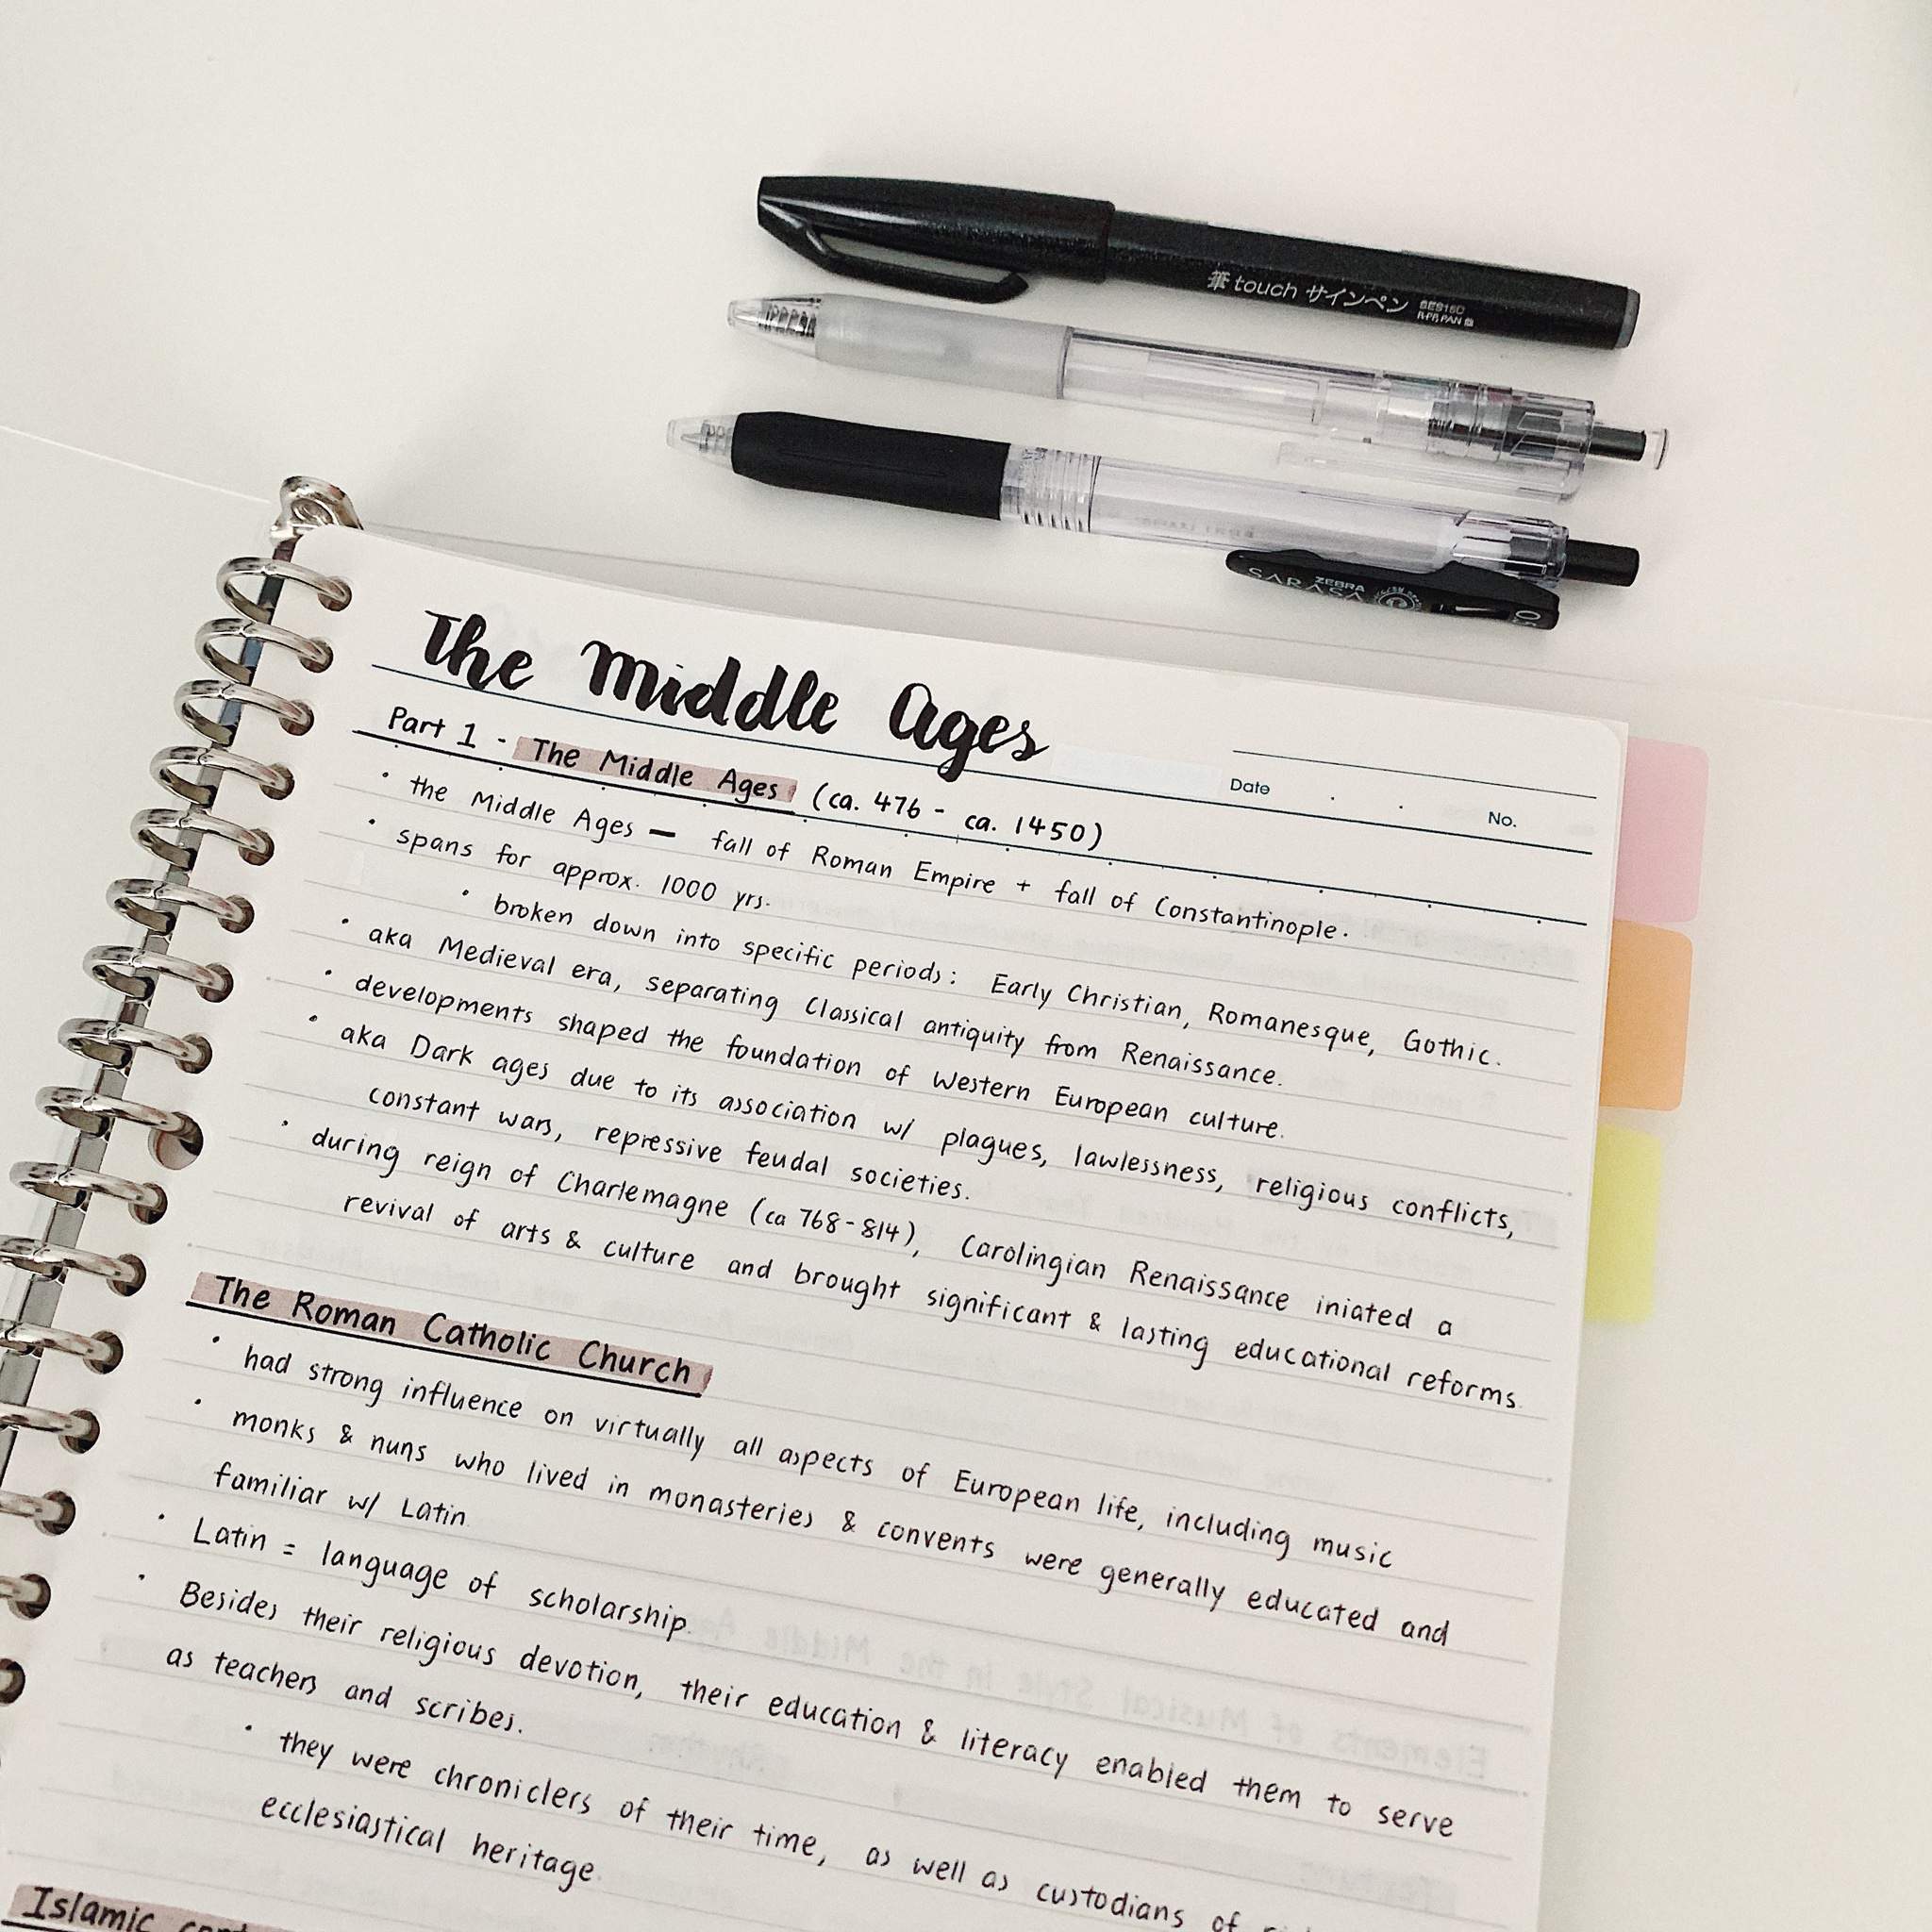 筆touch サインペン SES15C
ZEBRA
SARASA
The Middle Ages
Date
No.
Part 1 - The Middle Ages (ca. 476 - ca. 1450)
• the Middle Ages — fall of Roman Empire + fall of Constantinople.
• spans for approx. 1000 yrs.
• broken down into specific periods: Early Christian, Romanesque, Gothic.
• aka Medieval era, separating Classical antiquity from Renaissance.
• developments shaped the foundation of Western European culture.
• aka Dark ages due to its association w/ plagues, lawlessness, religious conflicts,
constant wars, repressive feudal societies.
• during reign of Charlemagne (ca 768-814), Carolingian Renaissance iniated a
revival of arts & culture and brought significant & lasting educational reforms.
The Roman Catholic Church
• had strong influence on virtually all aspects of European life, including music
• monks & nuns who lived in monasteries & convents were generally educated and
familiar w/ Latin
• Latin = language of scholarship.
• Besides their religious devotion, their education & literacy enabled them to serve
as teachers and scribes.
• they were chroniclers of their time, as well as custodians of
ecclesiastical heritage.
Islamic